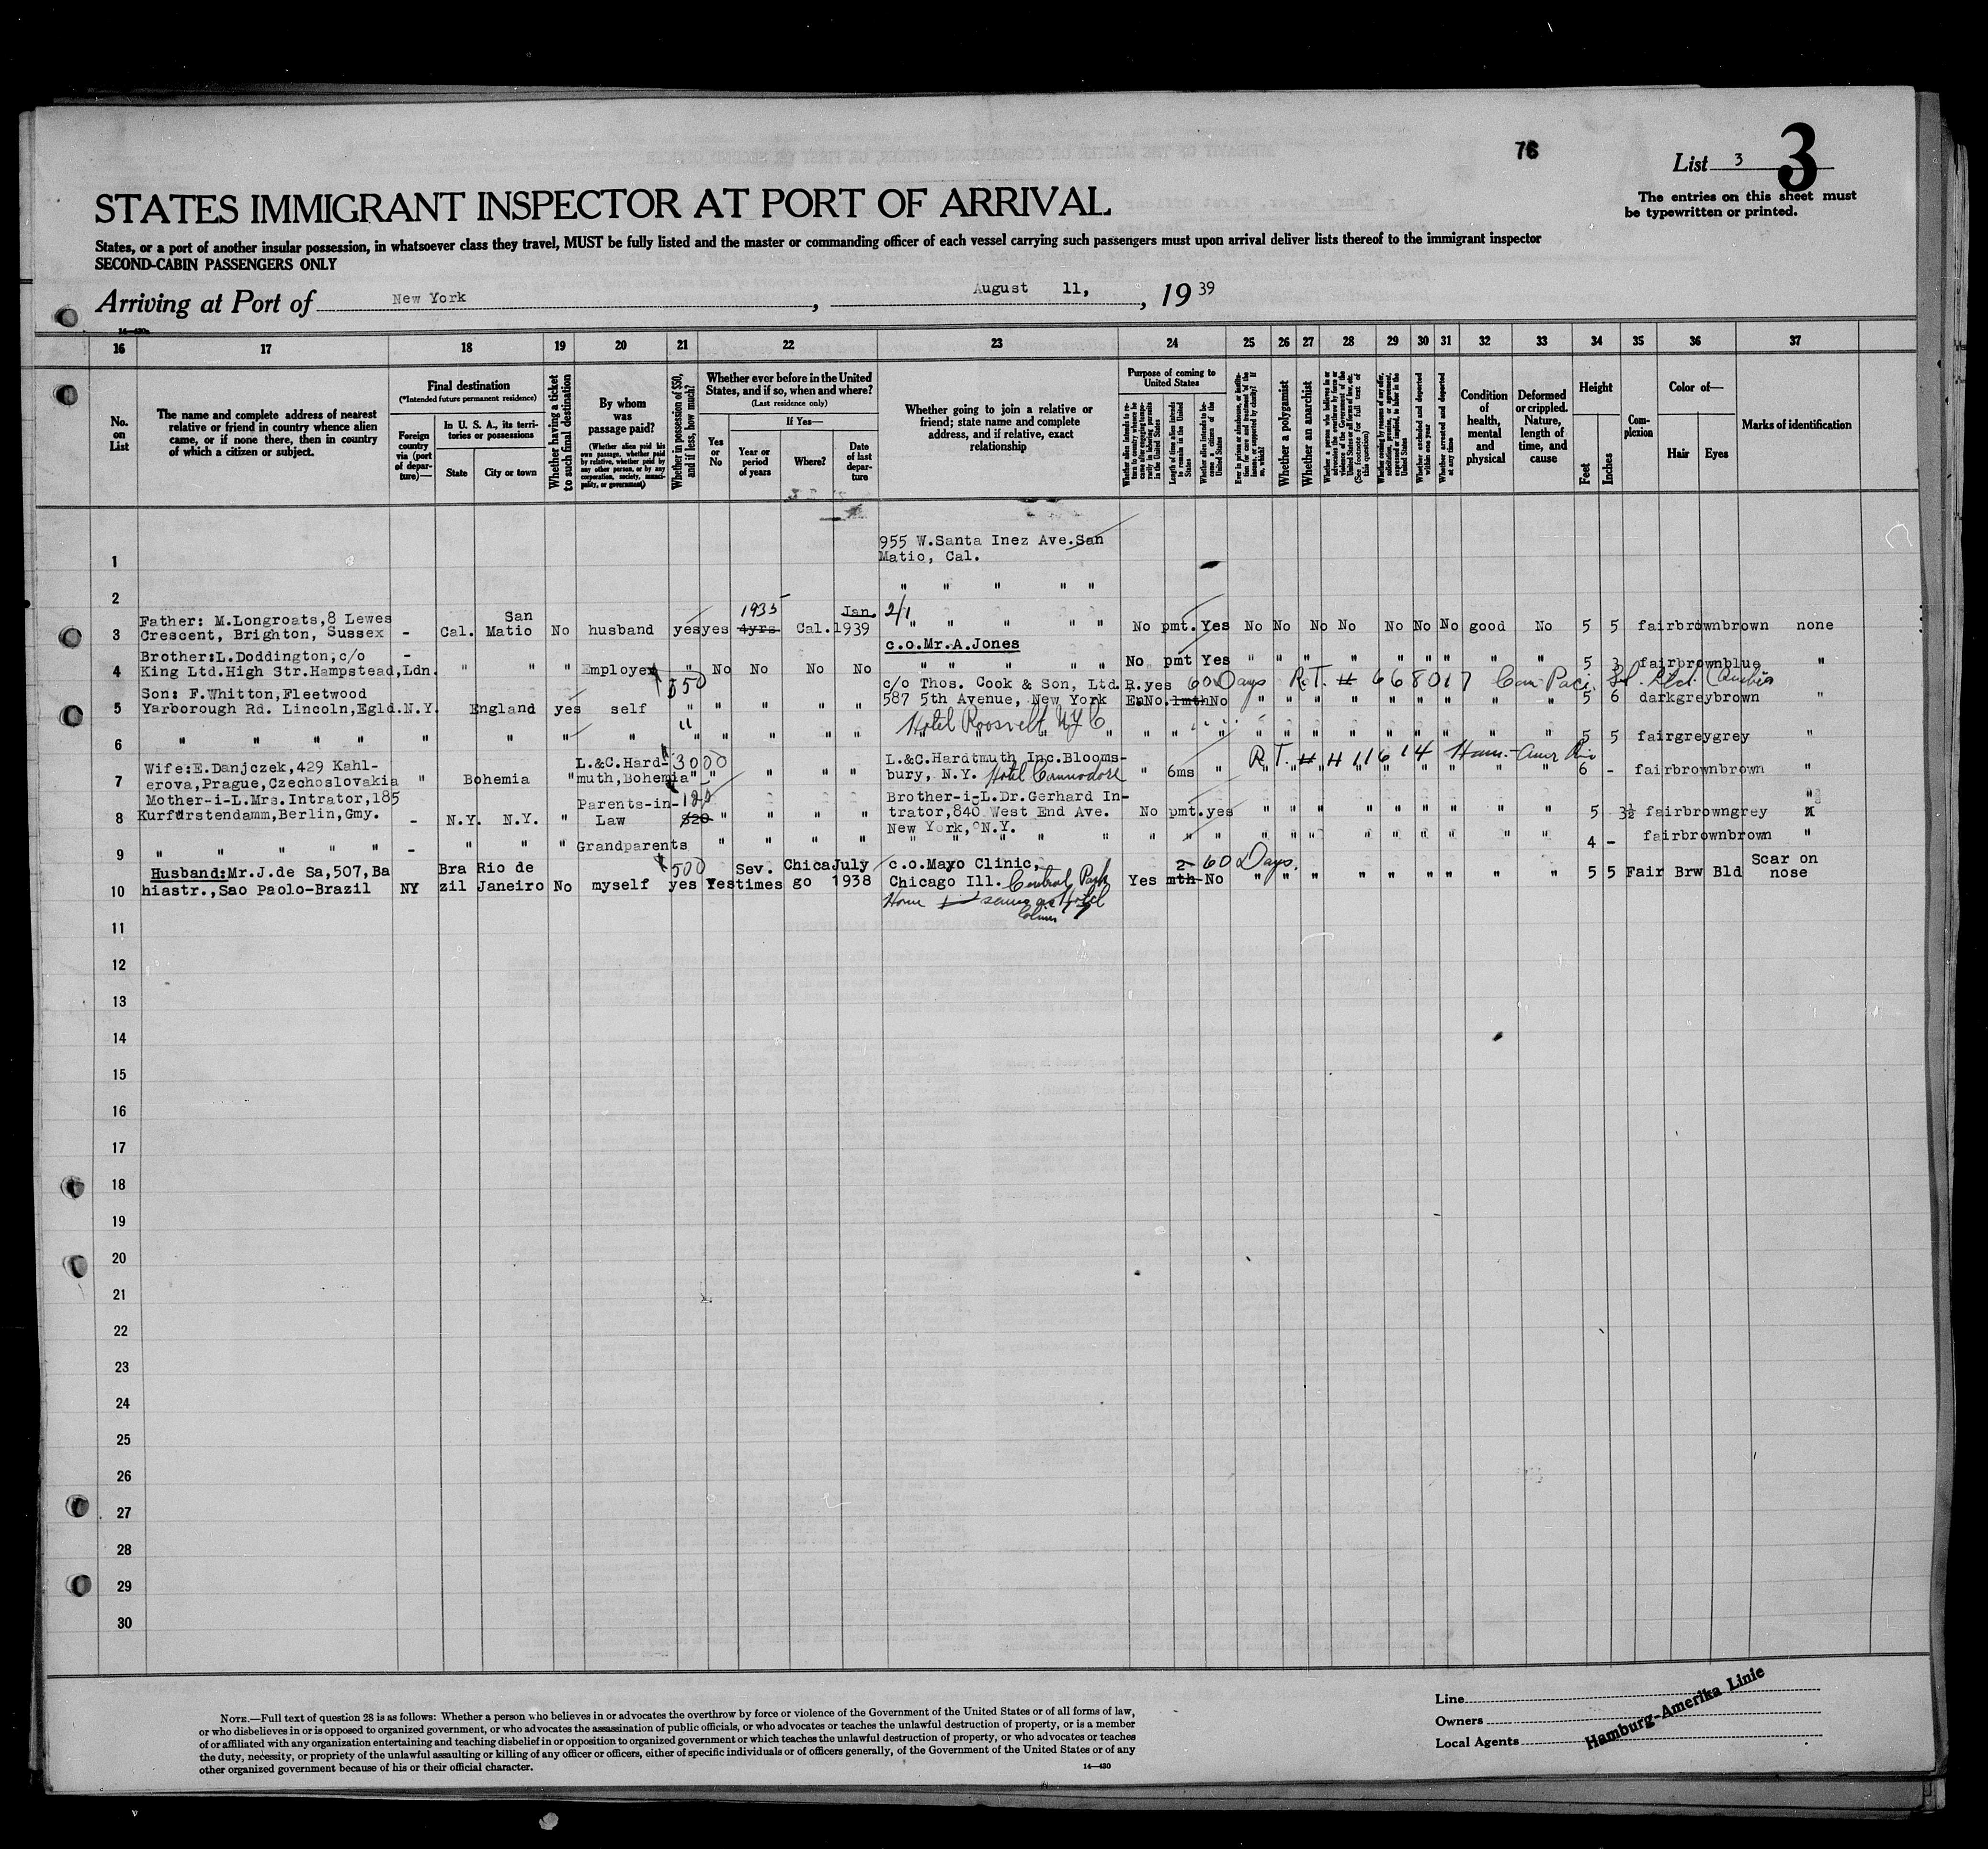 76
List 3
3
The entries on this sheet must
be typewritten or printed.
STATES IMMIGRANT INSPECTOR AT PORT OF ARRIVAL
States, or a port of another insular possession, in whatsoever class they travel, MUST be fully listed and the master or commanding officer of each vessel carrying such passengers must upon arrival deliver lists thereof to the immigrant inspector
SECOND-CABIN PASSENGERS ONLY
Arriving at Port of New York, August 11, 1939
14—430
16 17 18 19 20 21 22 23 24 25 26 27 28 29 30 31 32 33 34 35 36 37
No. on List
The name and complete address of nearest
relative or friend in country whence alien
came, or if none there, then in country
of which a citizen or subject.
Final destination
(*Intended future permanent residence)
Foreign country via (port of departure)—
In U. S. A., its territories or possessions
State
City or town
Whether having a ticket to such final destination
By whom was passage paid?
(Whether alien paid his own passage, whether paid by relative, whether paid by any other person, or by any corporation, society, municipality, or government)
Whether in possession of $50, and if less, how much?
Whether ever before in the United
States, and if so, when and where?
(Last residence only)
Yes or No
If Yes—
Year or period of years
Where?
Date of last departure
Whether going to join a relative or
friend; state name and complete
address, and if relative, exact
relationship
Purpose of coming to United States
Length of time alien intends to remain in the United States
Whether alien intends to become a citizen of the United States
Whether a polygamist
Whether an anarchist
Whether excluded and deported within one year
Whether arrested and deported at any time
Condition of health, mental and physical
Deformed or crippled. Nature, length of time, and cause
Height
Feet
Inches
Complexion
Color of—
Hair
Eyes
Marks of identification
1 955 W.Santa Inez Ave.San
Matio, Cal.
2 " " " " "
3 Father: M.Longroats,8 Lewes
Crescent, Brighton, Sussex - Cal. San Matio No husband yes yes 1935 4yrs Cal. Jan. 1939 2/1 " " " " " No pmt. Yes No No No No No No No good No 5 5 fair brown brown none
c.o.Mr.A.Jones
4 Brother:L.Doddington,c/o
King Ltd.High Str.Hampstead,Ldn. - " " " Employer " No No No No " " " " " No pmt Yes " " " " " " " " " 5 3 fair brown blue "
5 Son: F.Whitton,Fleetwood
Yarborough Rd. Lincoln,Egld. N.Y. England yes self 550 " " " " " c/o Thos. Cook & Son, Ltd.
587 5th Avenue, New York R.yes Ep No. 1mth No 60 Days R.T. # 668017 Can Paci. " " " " " " " " " 5 6 dark grey brown "
Hotel Roosvelt NYC
6 " " " " " " " " " " " " " " " " 5 5 fair grey grey "
7 Wife:E.Danjczek,429 Kahl-
erova,Prague,Czechoslovakia " Bohemia " L.&C.Hard-
muth,Bohemia 3000 " " " " " L.&C.Hardtmuth Inc.Blooms-
bury, N.Y. Hotel Commodore " 6ms " R.T. # 411614 Ham.-Amer " " " " " " " " 6 - fair brown brown "
8 Mother-i-L.Mrs.Intrator,185
Kurfürstendamm,Berlin,Gmy. - N.Y. N.Y. " Parents-in-
Law $20 " " " " Brother-i-L.Dr.Gerhard In-
trator,840 West End Ave.
New York, N.Y. No pmt. yes " " " " " " " " " 5 3½ fair brown grey "
9 " " " " " - " " " Grandparents " " " " " " " " " " " " " " " " " " " " " 4 - fair brown brown "
10 Husband:Mr.J.de Sa,507,Ba
hiastr.,Sao Paolo-Brazil NY Bra
zil Rio de
Janeiro No myself 500 yes Yes Sev.
times Chica
go July
1938 c.o.Mayo Clinic,
Chicago Ill. Central Park Yes 2 mth 60 Days. No " " " " " " " " " 5 5 Fair Brw Bld Scar on
nose
Home same as Hotel
11
12
13
14
15
16
17
18
19
20
21
22
23
24
25
26
27
28
29
30
NOTE.—Full text of question 28 is as follows: Whether a person who believes in or advocates the overthrow by force or violence of the Government of the United States or of all forms of law,
or who disbelieves in or is opposed to organized government, or who advocates the assassination of public officials, or who advocates or teaches the unlawful destruction of property, or is a member
of or affiliated with any organization entertaining and teaching disbelief in or opposition to organized government or which teaches the unlawful destruction of property, or who advocates or teaches
the duty, necessity, or propriety of the unlawful assaulting or killing of any officer or officers, either of specific individuals or of officers generally, of the Government of the United States or of any
other organized government because of his or their official character.
14—430
Line
Owners
Local Agents
Hamburg-Amerika Linie